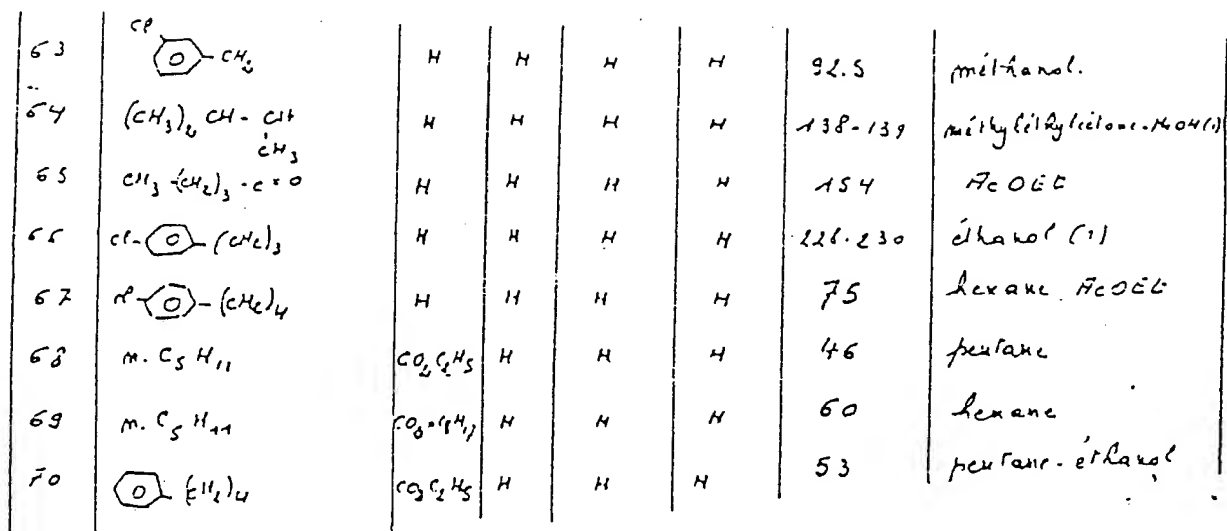 63 Cl -CH2 H H H H 92.5 méthanol.
64 (CH3)2 CH - CH H H H H 138-139 méthyléthylcétone-MeOH(1)
CH3
65 CH3-(CH2)3-C=O H H H H 154 AcOEt
66 Cl- -(CH2)3 H H H H 228-230 éthanol (1)
67 Cl- -(CH2)4 H H H H 75 hexane AcOEt
68 n. C5 H11 CO2C2H5 H H H 46 pentane
69 n. C5 H11 H H H 60 hexane
70 -(CH2)4 CO2C2H5 H H H 53 pentane-éthanol